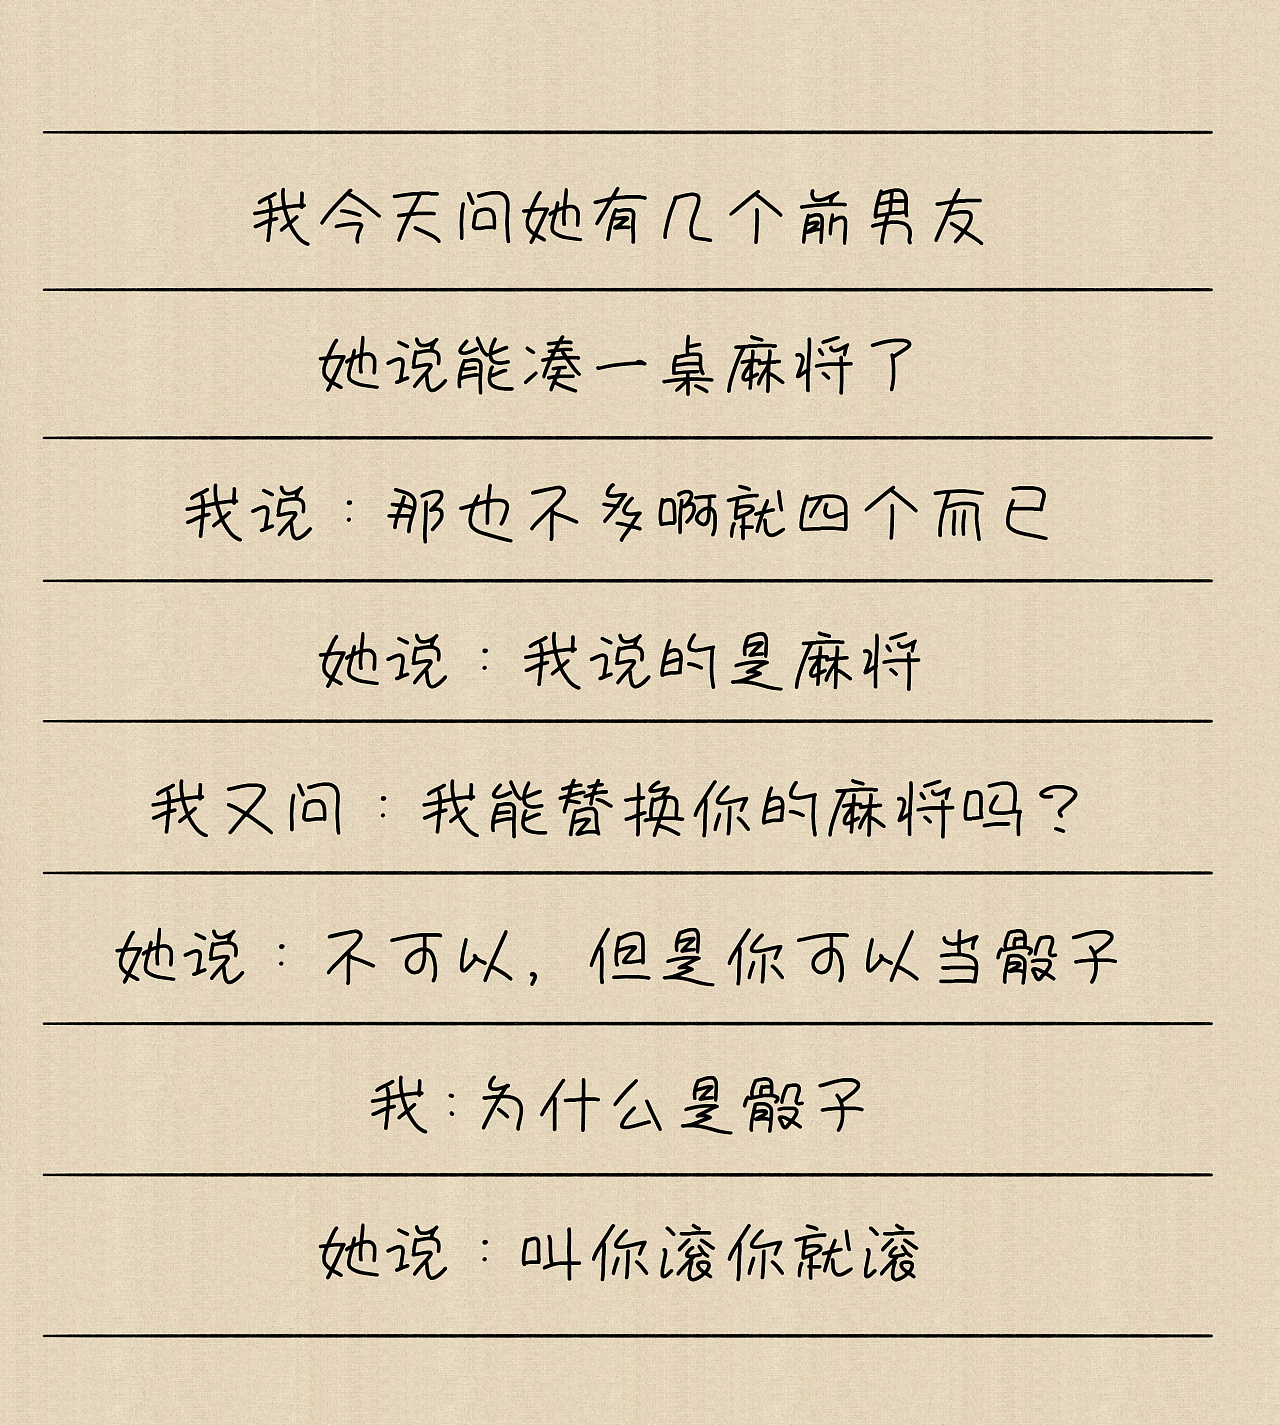 我今天问她有几个前男友
她说能凑一桌麻将了
我说：那也不多啊就四个而已
她说：我说的是麻将
我又问：我能替换你的麻将吗？
她说：不可以，但是你可以当骰子
我：为什么是骰子
她说：叫你滚你就滚